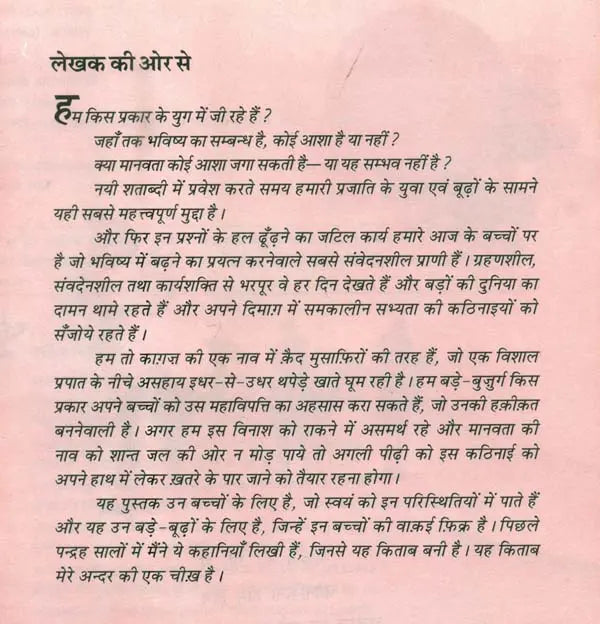 लेखक की ओर से
हम किस प्रकार के युग में जी रहे हैं ?
जहाँ तक भविष्य का सम्बन्ध है, कोई आशा है या नहीं ?
क्या मानवता कोई आशा जगा सकती है— या यह सम्भव नहीं है ?
नयी शताब्दी में प्रवेश करते समय हमारी प्रजाति के युवा एवं बूढ़ों के सामने
यही सबसे महत्त्वपूर्ण मुद्दा है ।
और फिर इन प्रश्नों के हल ढूँढ़ने का जटिल कार्य हमारे आज के बच्चों पर
है जो भविष्य में बढ़ने का प्रयत्न करनेवाले सबसे संवेदनशील प्राणी हैं । ग्रहणशील,
संवदेनशील तथा कार्यशक्ति से भरपूर वे हर दिन देखते हैं और बड़ों की दुनिया का
दामन थामे रहते हैं और अपने दिमाग़ में समकालीन सभ्यता की कठिनाइयों को
सँजोये रहते हैं ।
हम तो काग़ज़ की एक नाव में क़ैद मुसाफ़िरों की तरह हैं, जो एक विशाल
प्रपात के नीचे असहाय इधर-से-उधर थपेड़े खाते घूम रही है । हम बड़े-बुज़ुर्ग किस
प्रकार अपने बच्चों को उस महाविपत्ति का अहसास करा सकते हैं, जो उनकी हक़ीक़त
बननेवाली है । अगर हम इस विनाश को राकने में असमर्थ रहे और मानवता की
नाव को शान्त जल की ओर न मोड़ पाये तो अगली पीढ़ी को इस कठिनाई को
अपने हाथ में लेकर ख़तरे के पार जाने को तैयार रहना होगा ।
यह पुस्तक उन बच्चों के लिए है, जो स्वयं को इन परिस्थितियों में पाते हैं
और यह उन बड़े-बूढ़ों के लिए है, जिन्हें इन बच्चों की वाक़ई फ़िक्र है । पिछले
पन्द्रह सालों में मैंने ये कहानियाँ लिखी हैं, जिनसे यह किताब बनी है । यह किताब
मेरे अन्दर की एक चीख़ है ।